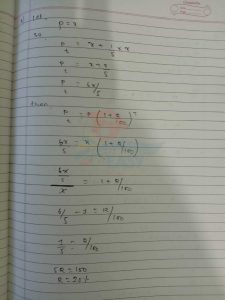 let,
P = x
so,
P/t = x + 1/5 × x
P/t = x + x/5
P/t = 6x/5
then,
P/t = P (1 + R/100)^T
6x/5 = x (1 + R/100)
6x/5/x = 1 + R/100
6/5 - 1 = R/100
1/5 = R/100
5R = 100
R = 20%